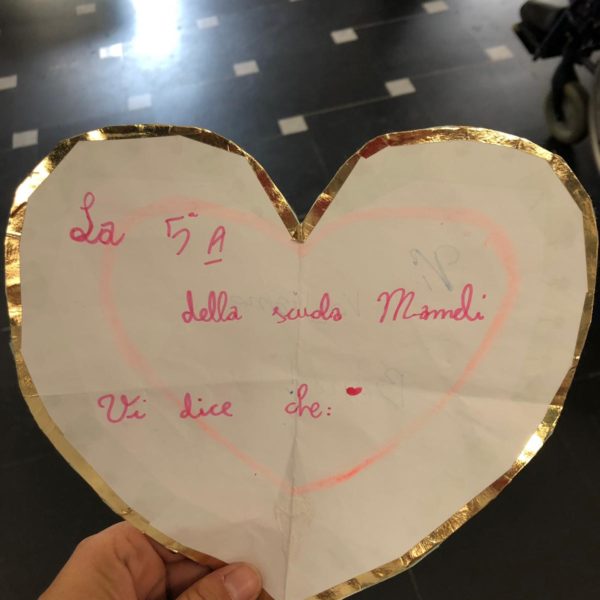 La 5ª A
della scuola Mameli
Vi dice che:
Vi